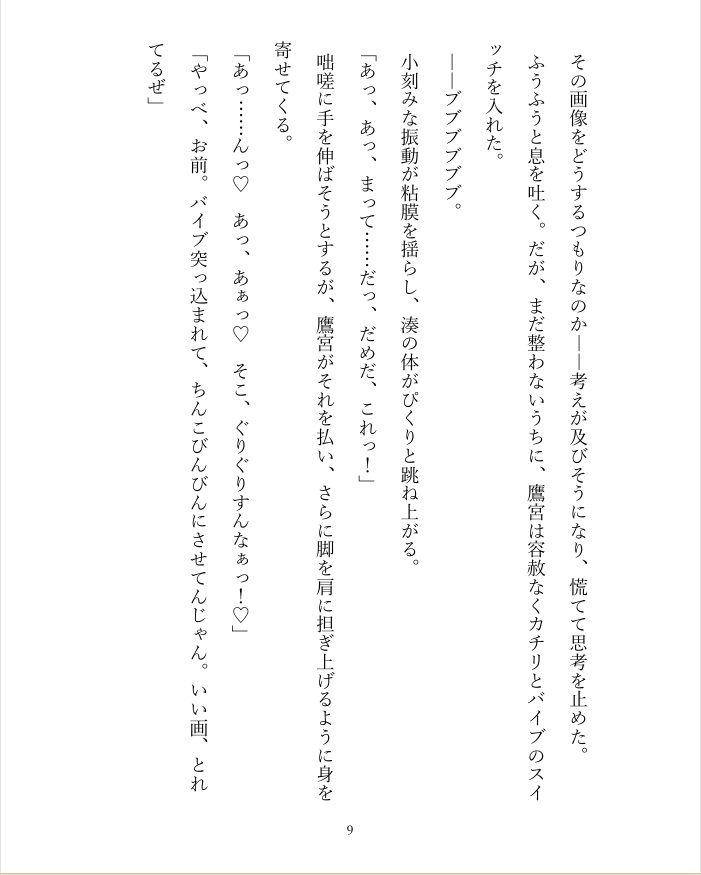 その画像をどうするつもりなのか――考えが及びそうになり、慌てて思考を止めた。
ふうふうと息を吐く。だが、まだ整わないうちに、鷹宮は容赦なくカチリとバイブのスイ
ッチを入れた。
――ブブブブブブ。
小刻みな振動が粘膜を揺らし、湊の体がぴくりと跳ね上がる。
「あっ、あっ、まって……だっ、だめだ、これっ！」
咄嗟に手を伸ばそうとするが、鷹宮がそれを払い、さらに脚を肩に担ぎ上げるように身を
寄せてくる。
「あっ……んっ♡　あっ、あぁっ♡　そこ、ぐりぐりすんなぁっ！♡」
「やっべ、お前。バイブ突っ込まれて、ちんこびんびんにさせてんじゃん。いい画、とれ
てるぜ」
9